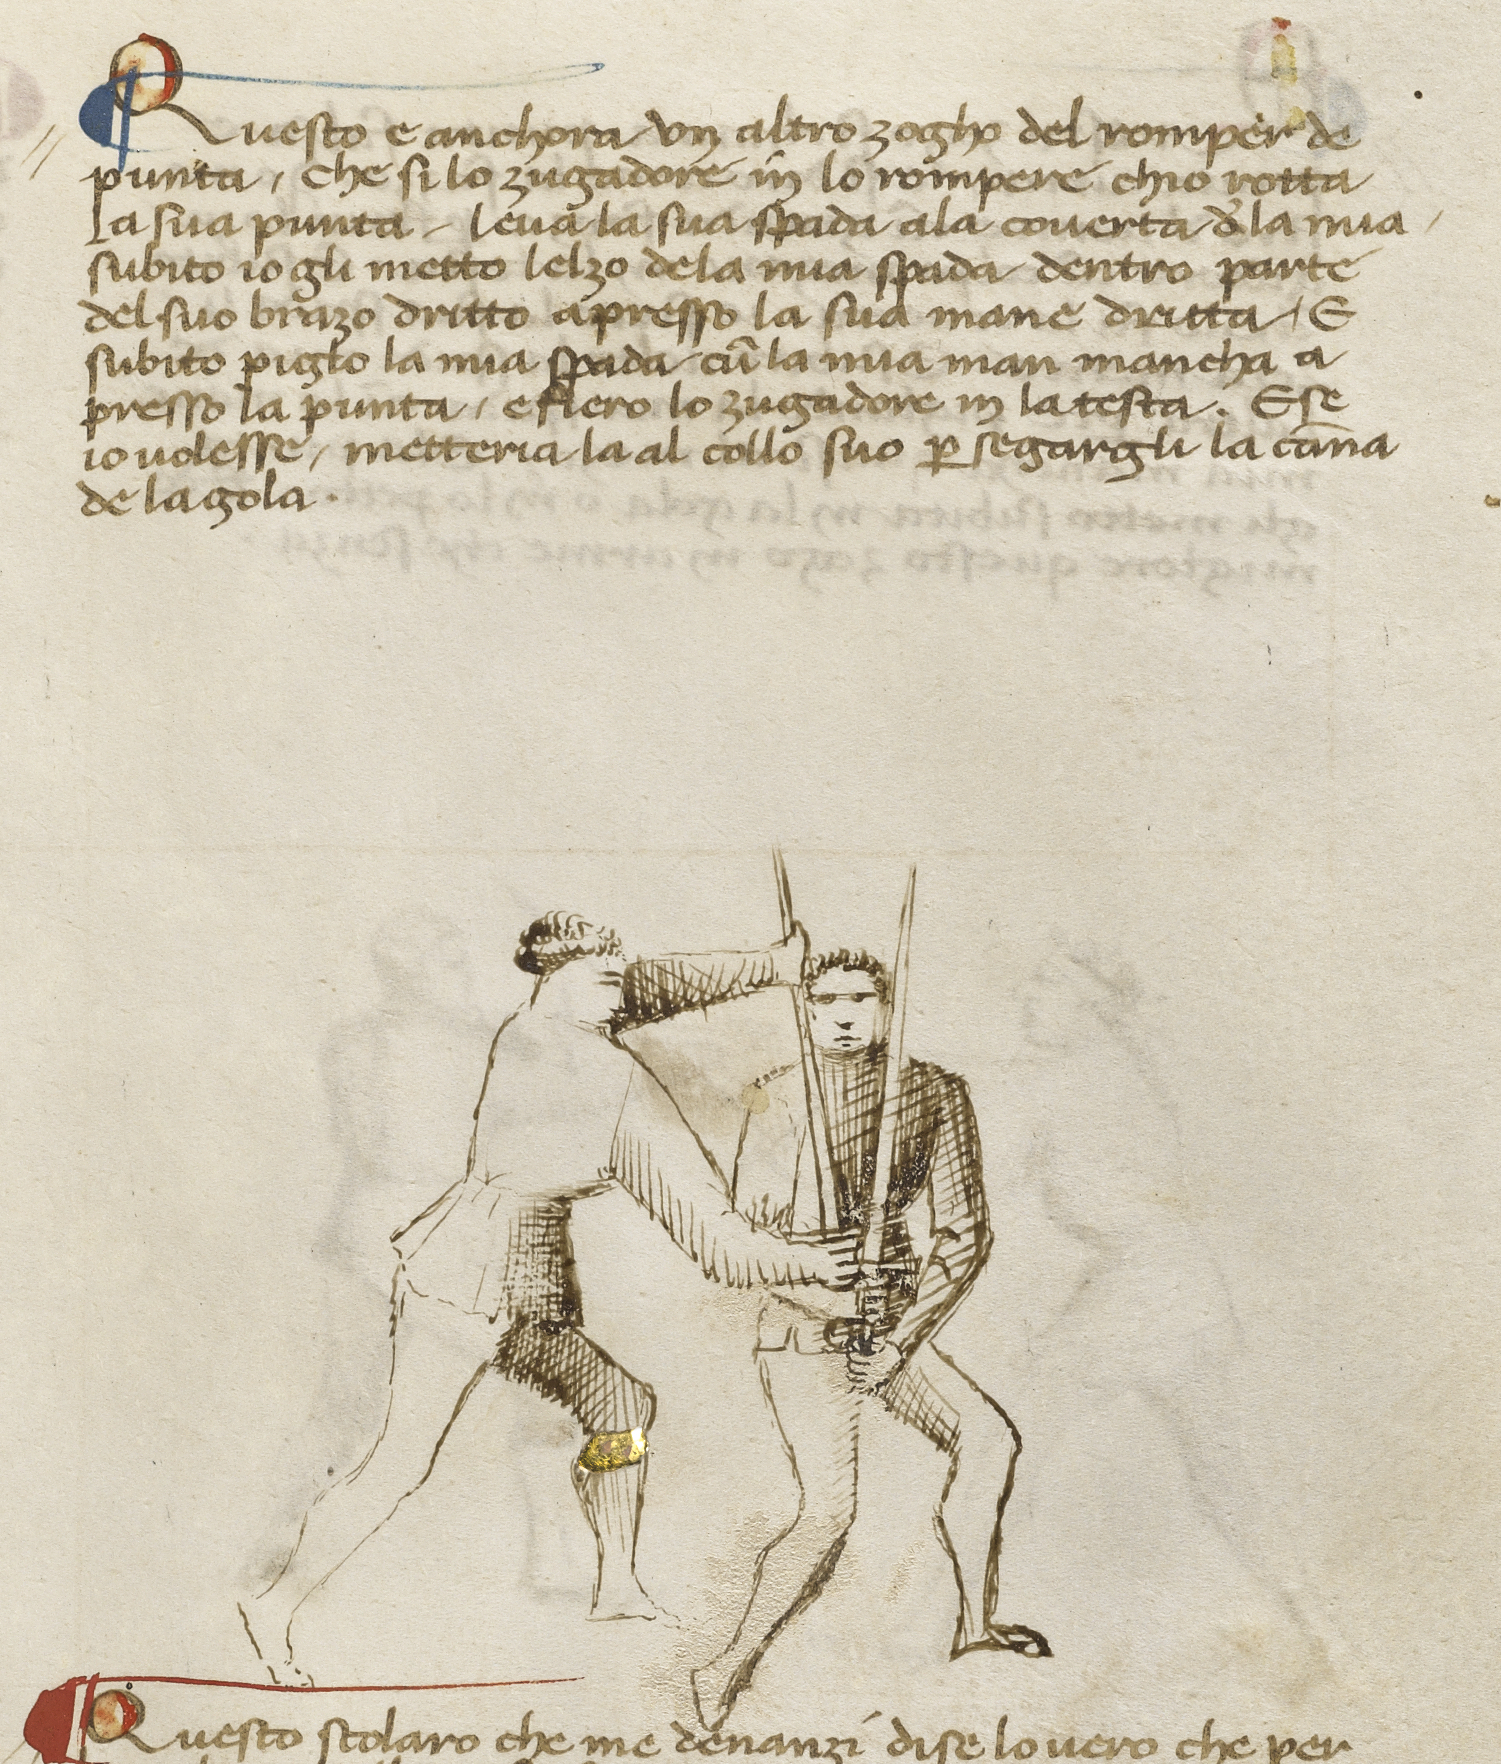 Questo e anchora un altro zogho del romper de
punta, che si lo zugadore in lo rompere chio rotta
La sua punta leva la sua spada ala coverta dela mia,
subito io gli metto lelzo dela mia spada dentro parte
del suo brazo dritto apresso la sua mane dritta, E
subito piglo la mia spada cū la mia man mancha a
presso la punta, e fiero lo zugadore in la testa. E se
io volesse, metteria la al collo suo ꝑ segargli la cāna
de la gola.
Questo scolaro che me denanzi dise lo vero che per